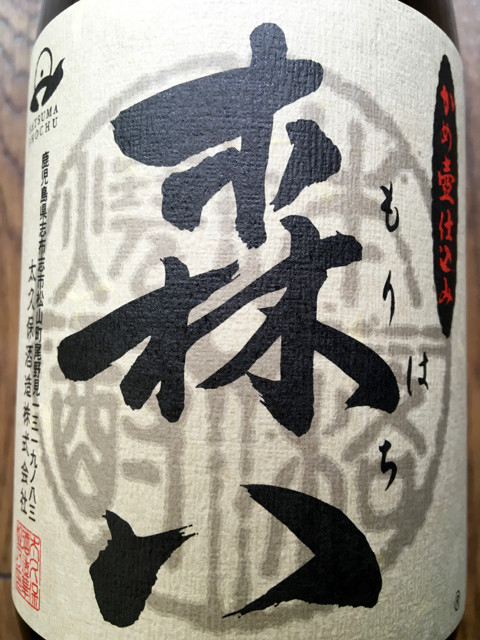 かめ壷仕込み
もりはち
森八
SATSUMA
SHOCHU
鹿児島県志布志市松山町尾野見一三一九ノ八三
太久保酒造株式会社